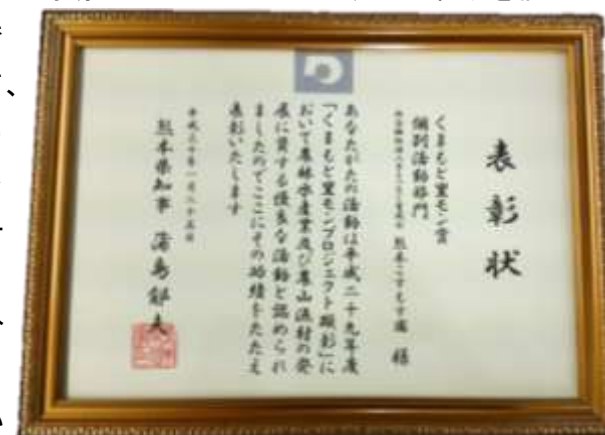 表彰状
くまもと里モン賞
個別活動部門
様
あなたがたの活動は平成二十九年度
「くまもと里モンプロジェクト顕彰」に
おいて農林水産業及び農山漁村の発
展に資する優良な活動と認められ
ましたのでここにその功績をたたえ
表彰いたします
平成三十年一月二十五日
熊本県知事 蒲島郁夫